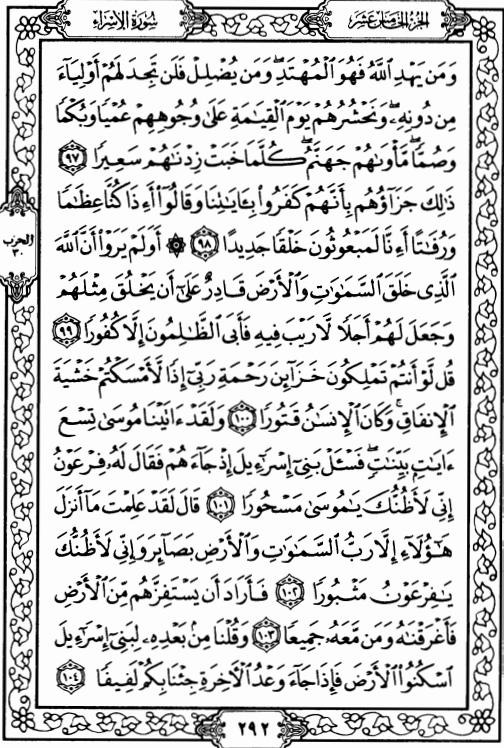 الجزء الخامس عشر
سورة الإسراء
وَمَن يَهْدِ ٱللَّهُ فَهُوَ ٱلْمُهْتَدِ ۖ وَمَن يُضْلِلْ فَلَن تَجِدَ لَهُمْ أَوْلِيَآءَ
مِن دُونِهِۦ ۖ وَنَحْشُرُهُمْ يَوْمَ ٱلْقِيَٰمَةِ عَلَىٰ وُجُوهِهِمْ عُمْيًا وَبُكْمًا
وَصُمًّا ۖ مَّأْوَىٰهُمْ جَهَنَّمُ ۖ كُلَّمَا خَبَتْ زِدْنَٰهُمْ سَعِيرًا ٩٧
ذَٰلِكَ جَزَآؤُهُم بِأَنَّهُمْ كَفَرُوا۟ بِـَٔايَٰتِنَا وَقَالُوٓا۟ أَءِذَا كُنَّا عِظَٰمًا
وَرُفَٰتًا أَءِنَّا لَمَبْعُوثُونَ خَلْقًا جَدِيدًا ٩٨ ۞ أَوَلَمْ يَرَوْا۟ أَنَّ ٱللَّهَ
الحزب ٣٠
ٱلَّذِى خَلَقَ ٱلسَّمَٰوَٰتِ وَٱلْأَرْضَ قَادِرٌ عَلَىٰٓ أَن يَخْلُقَ مِثْلَهُمْ
وَجَعَلَ لَهُمْ أَجَلًا لَّا رَيْبَ فِيهِ فَأَبَى ٱلظَّٰلِمُونَ إِلَّا كُفُورًا ٩٩
قُل لَّوْ أَنتُمْ تَمْلِكُونَ خَزَآئِنَ رَحْمَةِ رَبِّىٓ إِذًا لَّأَمْسَكْتُمْ خَشْيَةَ
ٱلْإِنفَاقِ ۚ وَكَانَ ٱلْإِنسَٰنُ قَتُورًا ١٠٠ وَلَقَدْ ءَاتَيْنَا مُوسَىٰ تِسْعَ
ءَايَٰتٍۭ بَيِّنَٰتٍ ۖ فَسْـَٔلْ بَنِىٓ إِسْرَٰٓءِيلَ إِذْ جَآءَهُمْ فَقَالَ لَهُۥ فِرْعَوْنُ
إِنِّى لَأَظُنُّكَ يَٰمُوسَىٰ مَسْحُورًا ١٠١ قَالَ لَقَدْ عَلِمْتَ مَآ أَنزَلَ
هَٰٓؤُلَآءِ إِلَّا رَبُّ ٱلسَّمَٰوَٰتِ وَٱلْأَرْضِ بَصَآئِرَ وَإِنِّى لَأَظُنُّكَ
يَٰفِرْعَوْنُ مَثْبُورًا ١٠٢ فَأَرَادَ أَن يَسْتَفِزَّهُم مِّنَ ٱلْأَرْضِ
فَأَغْرَقْنَٰهُ وَمَن مَّعَهُۥ جَمِيعًا ١٠٣ وَقُلْنَا مِنۢ بَعْدِهِۦ لِبَنِىٓ إِسْرَٰٓءِيلَ
ٱسْكُنُوا۟ ٱلْأَرْضَ فَإِذَا جَآءَ وَعْدُ ٱلْءَاخِرَةِ جِئْنَا بِكُمْ لَفِيفًا ١٠٤
٢٩٢